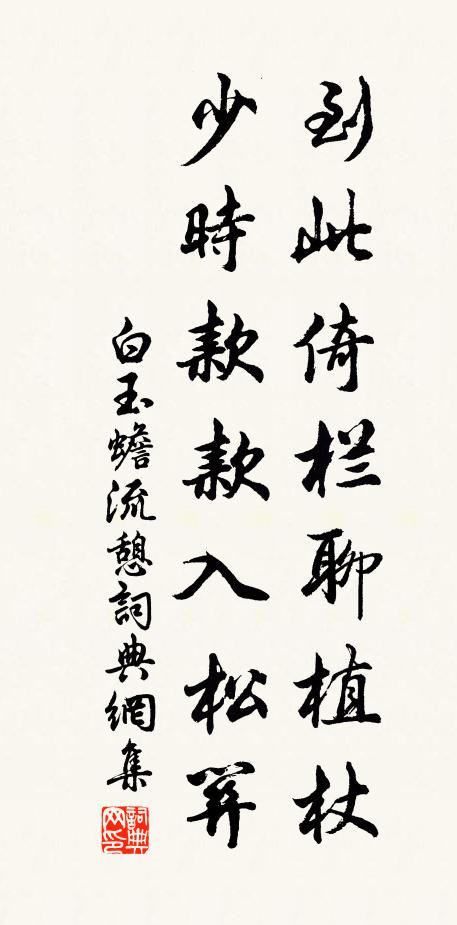 到此倚栏聊植杖
少時款款入松關
白玉蟾流憩詞典網集
詞典网印